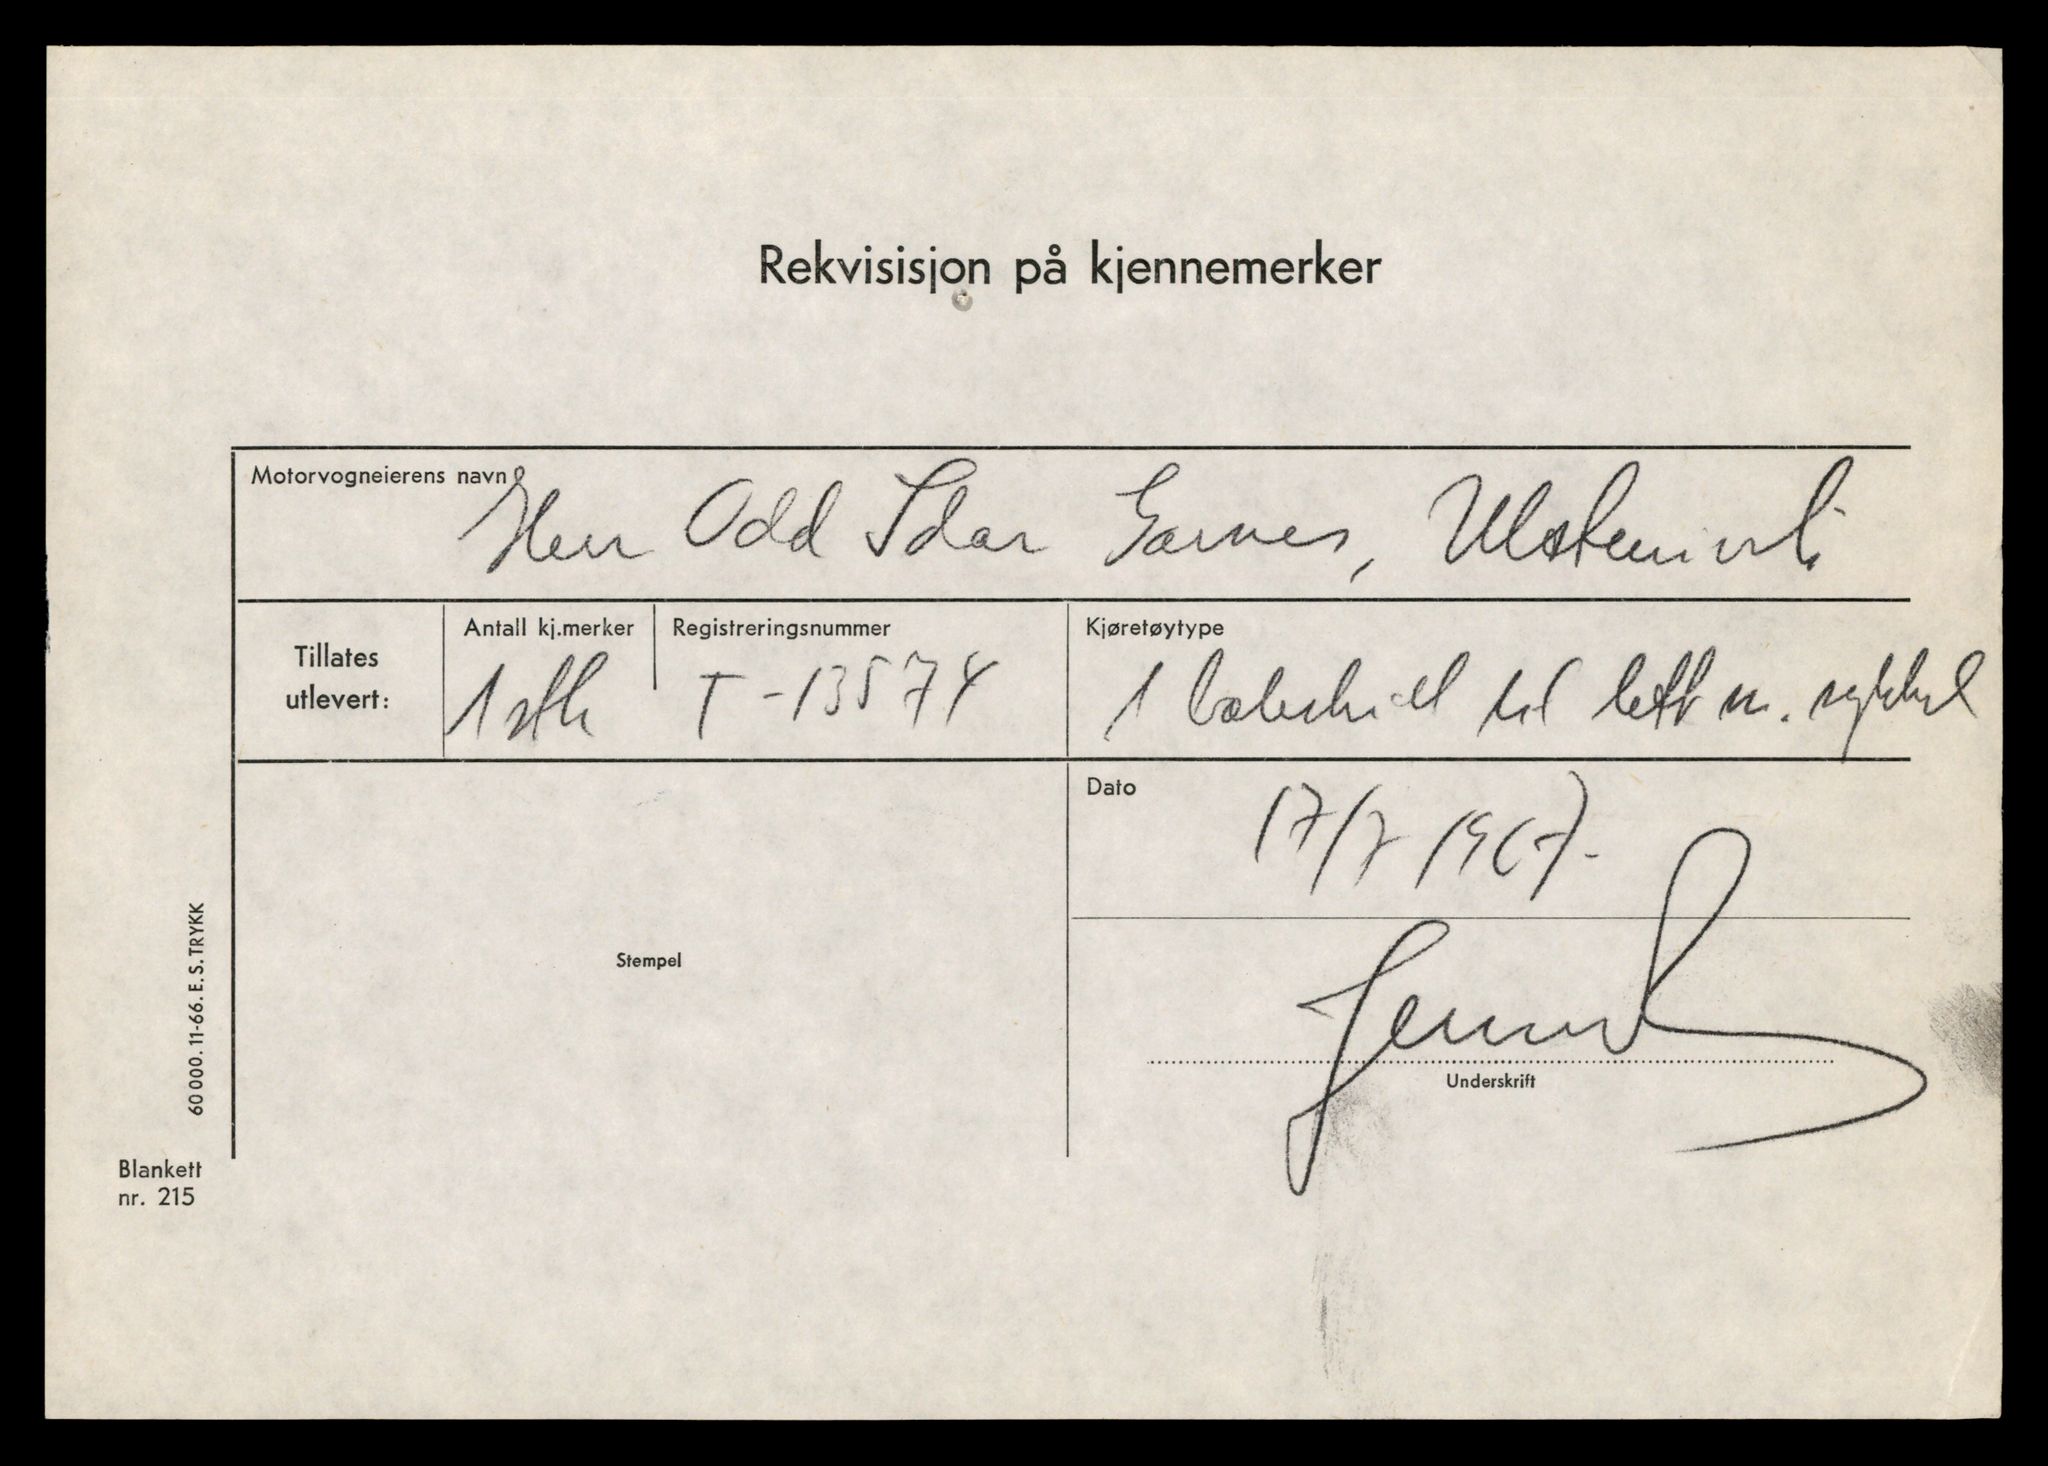 Rekvisisjon på kjennemerker
Motorvogneierens navn
Herr Odd Idar Garnes, Ulsteinvik
Tillates utlevert:
Antall kj.merker
1 stk
Registreringsnummer
T-13574
Kjøretøytype
1 bakskilt til lett m. sykkel
Dato
17/7 1967-
Stempel
Underskrift
60 000. 11-66. E. S. TRYKK
Blankett
nr. 215